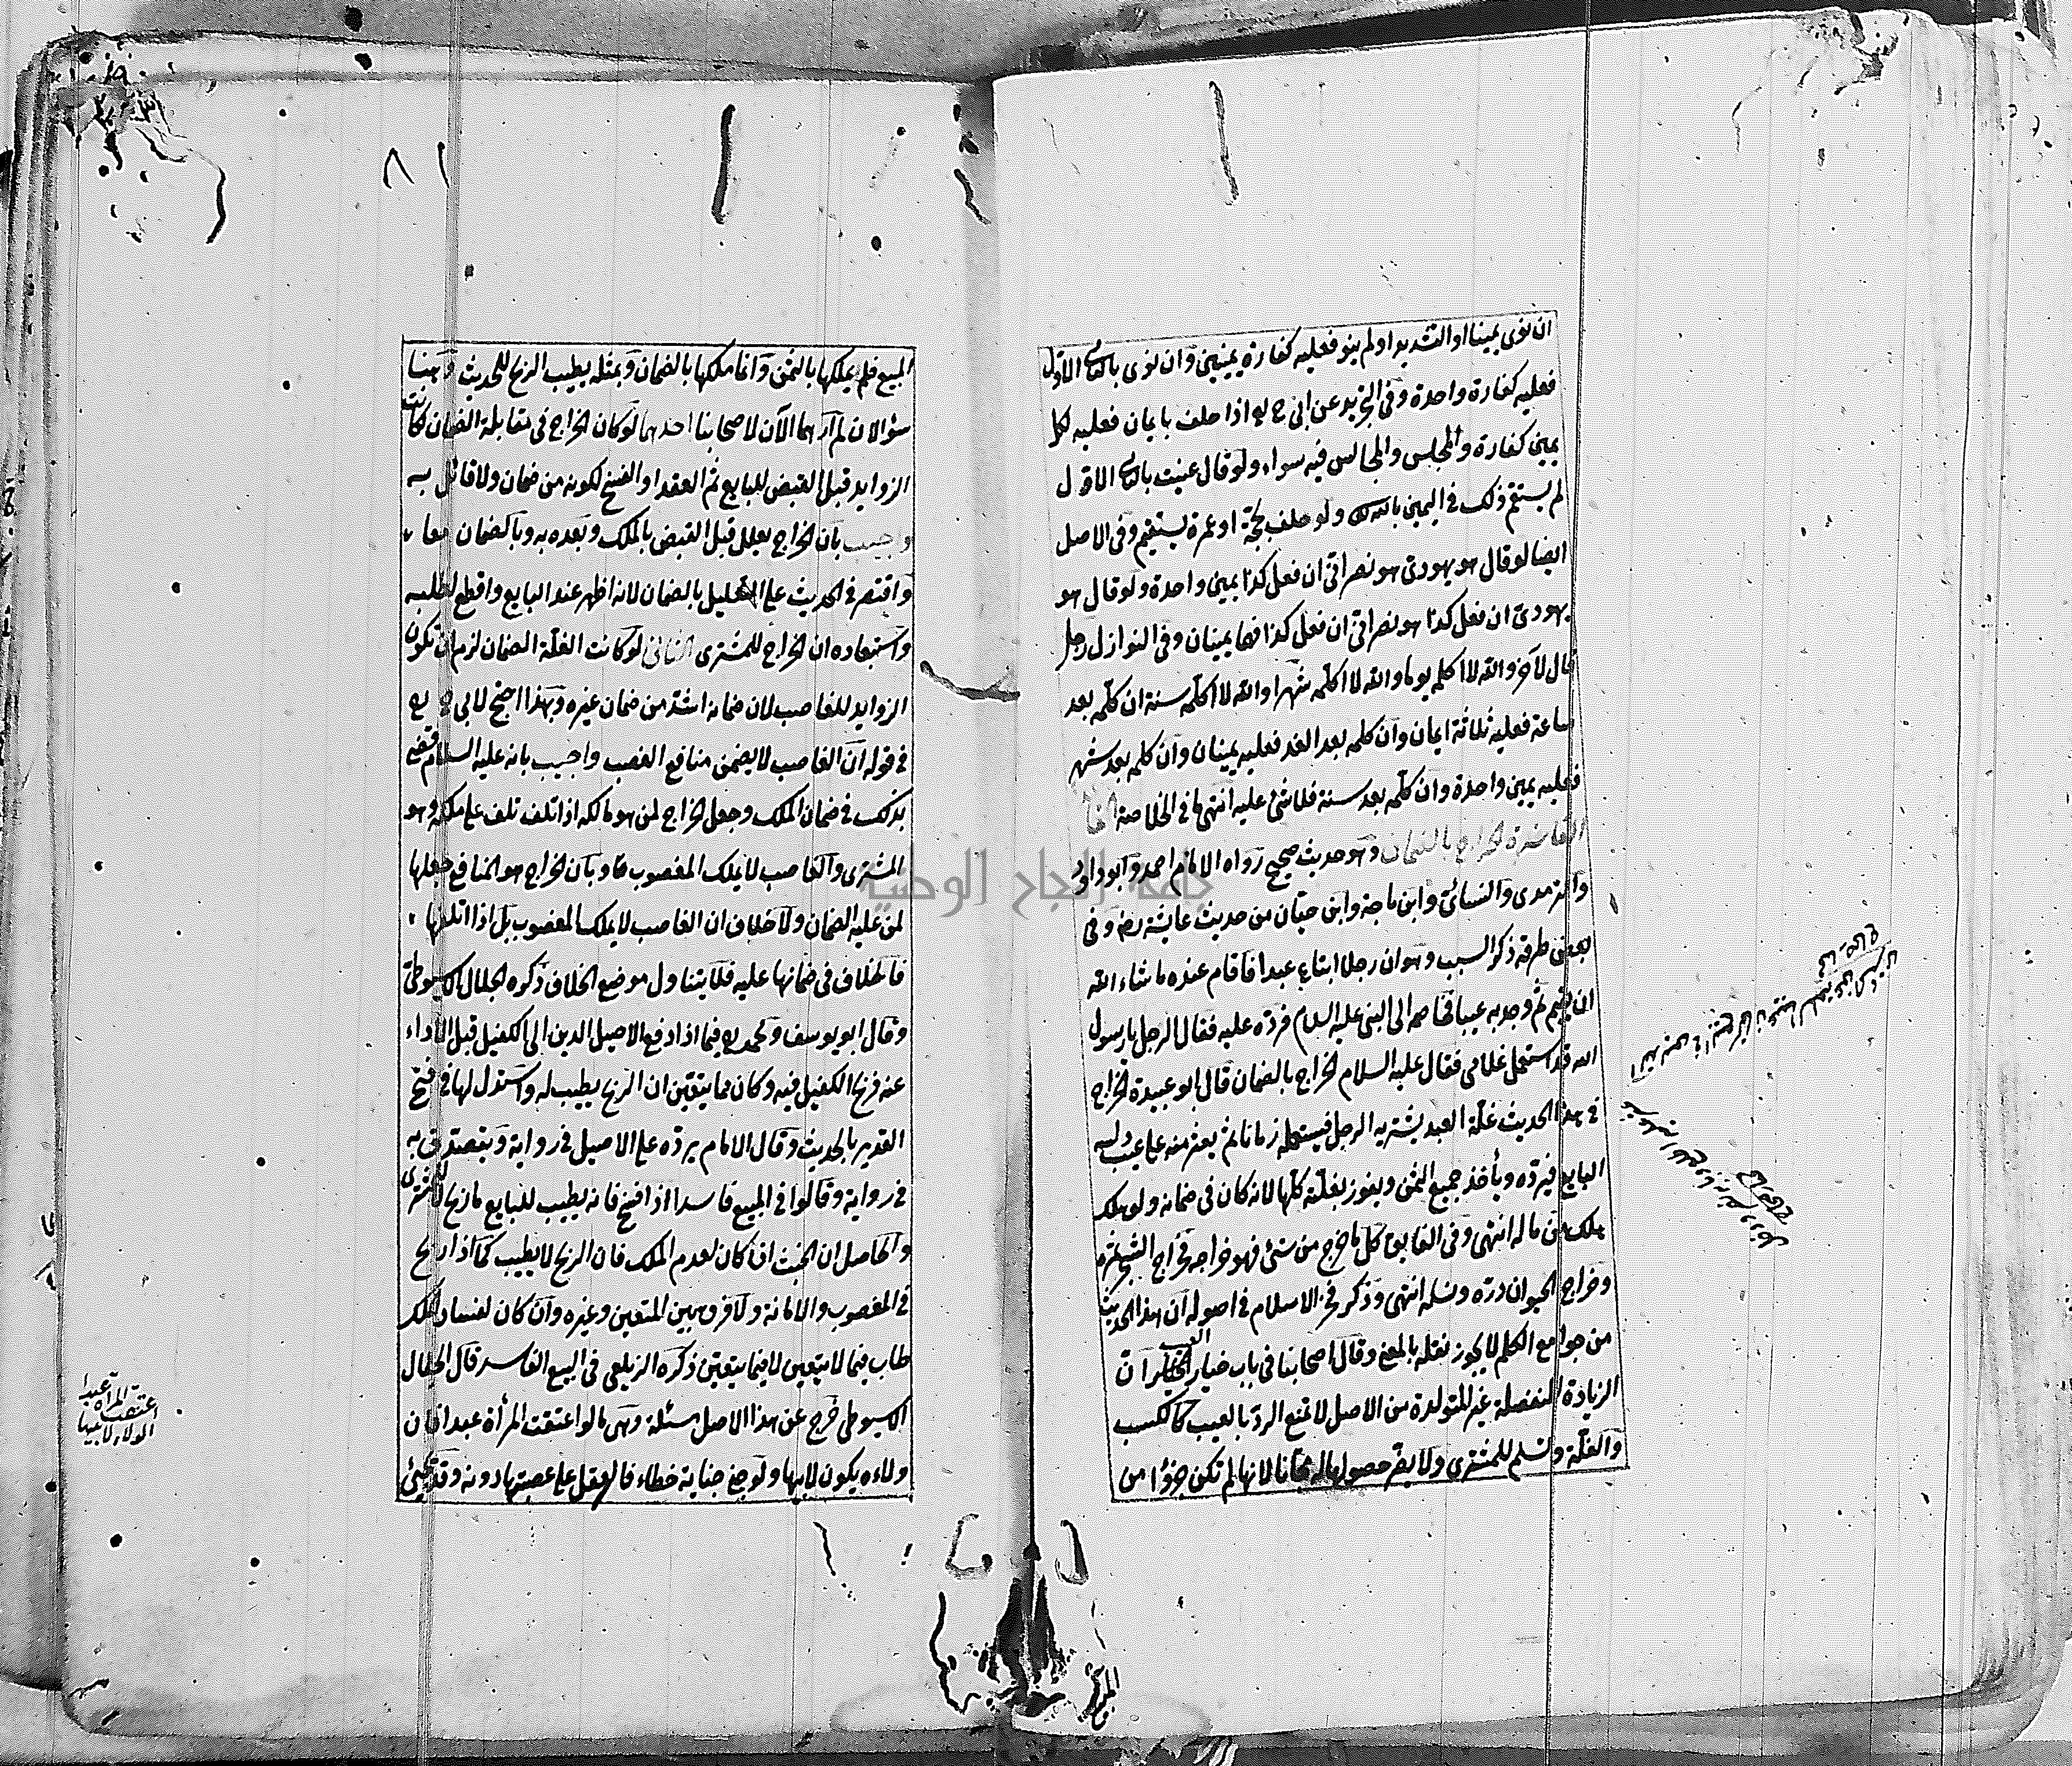 ان نوى يمينا او التشديد او لم ينو فعليه كفارة يمينين وان نوى بالثاني الاول
فعليه كفارة واحدة وفي التجريد عن ابي ح يع اذا حلف بايمان فعليه لكل
يمين كفارة والمجلس والمجالس فيه سواء ولو قال عنيت بالثاني الاول
لم يستقم ذلك في اليمين بالله ولو حلف بحجة او عمرة يستقيم وفي الاصل
ايضا لو قال هو يهودي هو نصراني ان فعل كذا يمين واحدة ولو قال هو
يهودي ان فعل كذا هو نصراني ان فعل كذا فهما يمينان وفي النوازل رجل
قال لآخر والله لا اكلمه يوما والله لا اكلمه شهرا والله لا اكلمه سنة ان كلمه بعد
ساعة فعليه ثلاثة ايمان وان كلمه بعد الغد فعليه يمينان وان كلمه بعد شهر
فعليه يمين واحدة وان كلمه بعد سنة فلا شئ عليه انتهى ما في الخلاصة
العاشرة الخراج بالضمان وهو حديث صحيح رواه الامام احمد وابو داود
والترمدى والنسائي وابن ماجة وابن حبان من حديث عايشة رضه وفي
بعض طرقه ذكر السبب وهو ان رجلا ابتاع عبدا فاقام عنده ما شاء الله
ان يقيم ثم وجد به عيبا فخاصمه الى النبي عليه السلام فرده عليه فقال الرجل يا رسول
الله قد استعمل غلامي فقال عليه السلام الخراج بالضمان قال ابو عبيدة الخراج
في هذا الحديث غلة العبد يشتريه الرجل فيستعمله زمانا ثم يعثر منه على عيب دلسه
البايع فيرده ويأخذ جميع الثمن ويفوز بغلته كلها لانه كان في ضمانه ولو هلك
هلك من ماله انتهى وفي الفايق كل ما خرج من شئ فهو خراجه فخراج الشجر ثمره
وخراج الحيوان دره ونسله انتهى وذكر فخر الاسلام في اصوله ان هذا الحديث
من جوامع الكلم لا يجوز نقله بالمعنى وقال اصحابنا في باب خيار العيب ان
الزيادة المنفصلة غير المتولدة من الاصل لا تمنع الرد بالعيب كالكسب
والغلة وتسلم للمشتري ولا يضر حصولها له مجانا لانها لم تكن جزؤا من
المبيع فلم يملكها بالثمن وانما ملكها بالضمان وبمثله يطيب الربح للحديث وههنا
سؤالان لم ارهما الآن لاصحابنا احدهما لو كان الخراج في مقابلة الضمان كانت
الزوايد قبل القبض للبايع تم العقد او انفسخ لكونه من ضمان ولا قائل به
واجيب بان الخراج يعلل قبل القبض بالملك وبعده به وبالضمان معا
واقتصر في الحديث على التعليل بالضمان لانه اظهر عند البايع واقطع لطلبه
واستبعاده ان الخراج للمشتري الثاني لو كانت الغلة الضمان لزم ان تكون
الزوايد للغاصب لان ضمانه اشد من ضمان غيره وبهذا احتج لابي ح يع
في قوله ان الغاصب لا يضمن منافع الغصب واجيب بانه عليه السلام قضى
بذلك في ضمان الملك وجعل الخراج لمن هو مالكه اذا تلف تلف على ملكه وهو
المشتري والغاصب لا يملك المغصوب وبان الخراج هو المنافع جعلها
لمن عليه الضمان ولا خلاف ان الغاصب لا يملك المغصوب بل اذا اتلفها
فالخلاف في ضمانها عليه فلا يتناول موضع الخلاف ذكره الجلال السيوطي
وقال ابو يوسف ومحمد يع فيما اذا دفع الاصيل الدين الى الكفيل قبل الاداء
عنه فربح الكفيل فيه وكان مما يتعين ان الربح يطيب له واستدل لها في فتح
القدير بالحديث وقال الامام يرده على الاصيل في رواية ويتصدق به
في رواية وقالوا في المبيع فاسدا اذا فسخ فانه يطيب للبايع ما ربح لا للمشتري
والحاصل ان الخبث اذا كان لعدم الملك فان الربح لا يطيب كما اذا ربح
في المغصوب والامانة ولا فرق بين المتعين وغيره وان كان لفساد الملك
طاب فيما لا يتعين لا فيما يتعين ذكره الزيلعي في البيع الفاسد قال الجلال
السيوطي خرج عن هذا الاصل مسئلة وهي مالو اعتقت المرأة عبدا فان
ولاءه يكون لابنها ولو جنى جناية خطاء فالعقل على عصبتها دونه وقد يجئ
اعتقت المرأة عبدا
الولاء لابنها
٨١
جامعة النجاح الوطنية